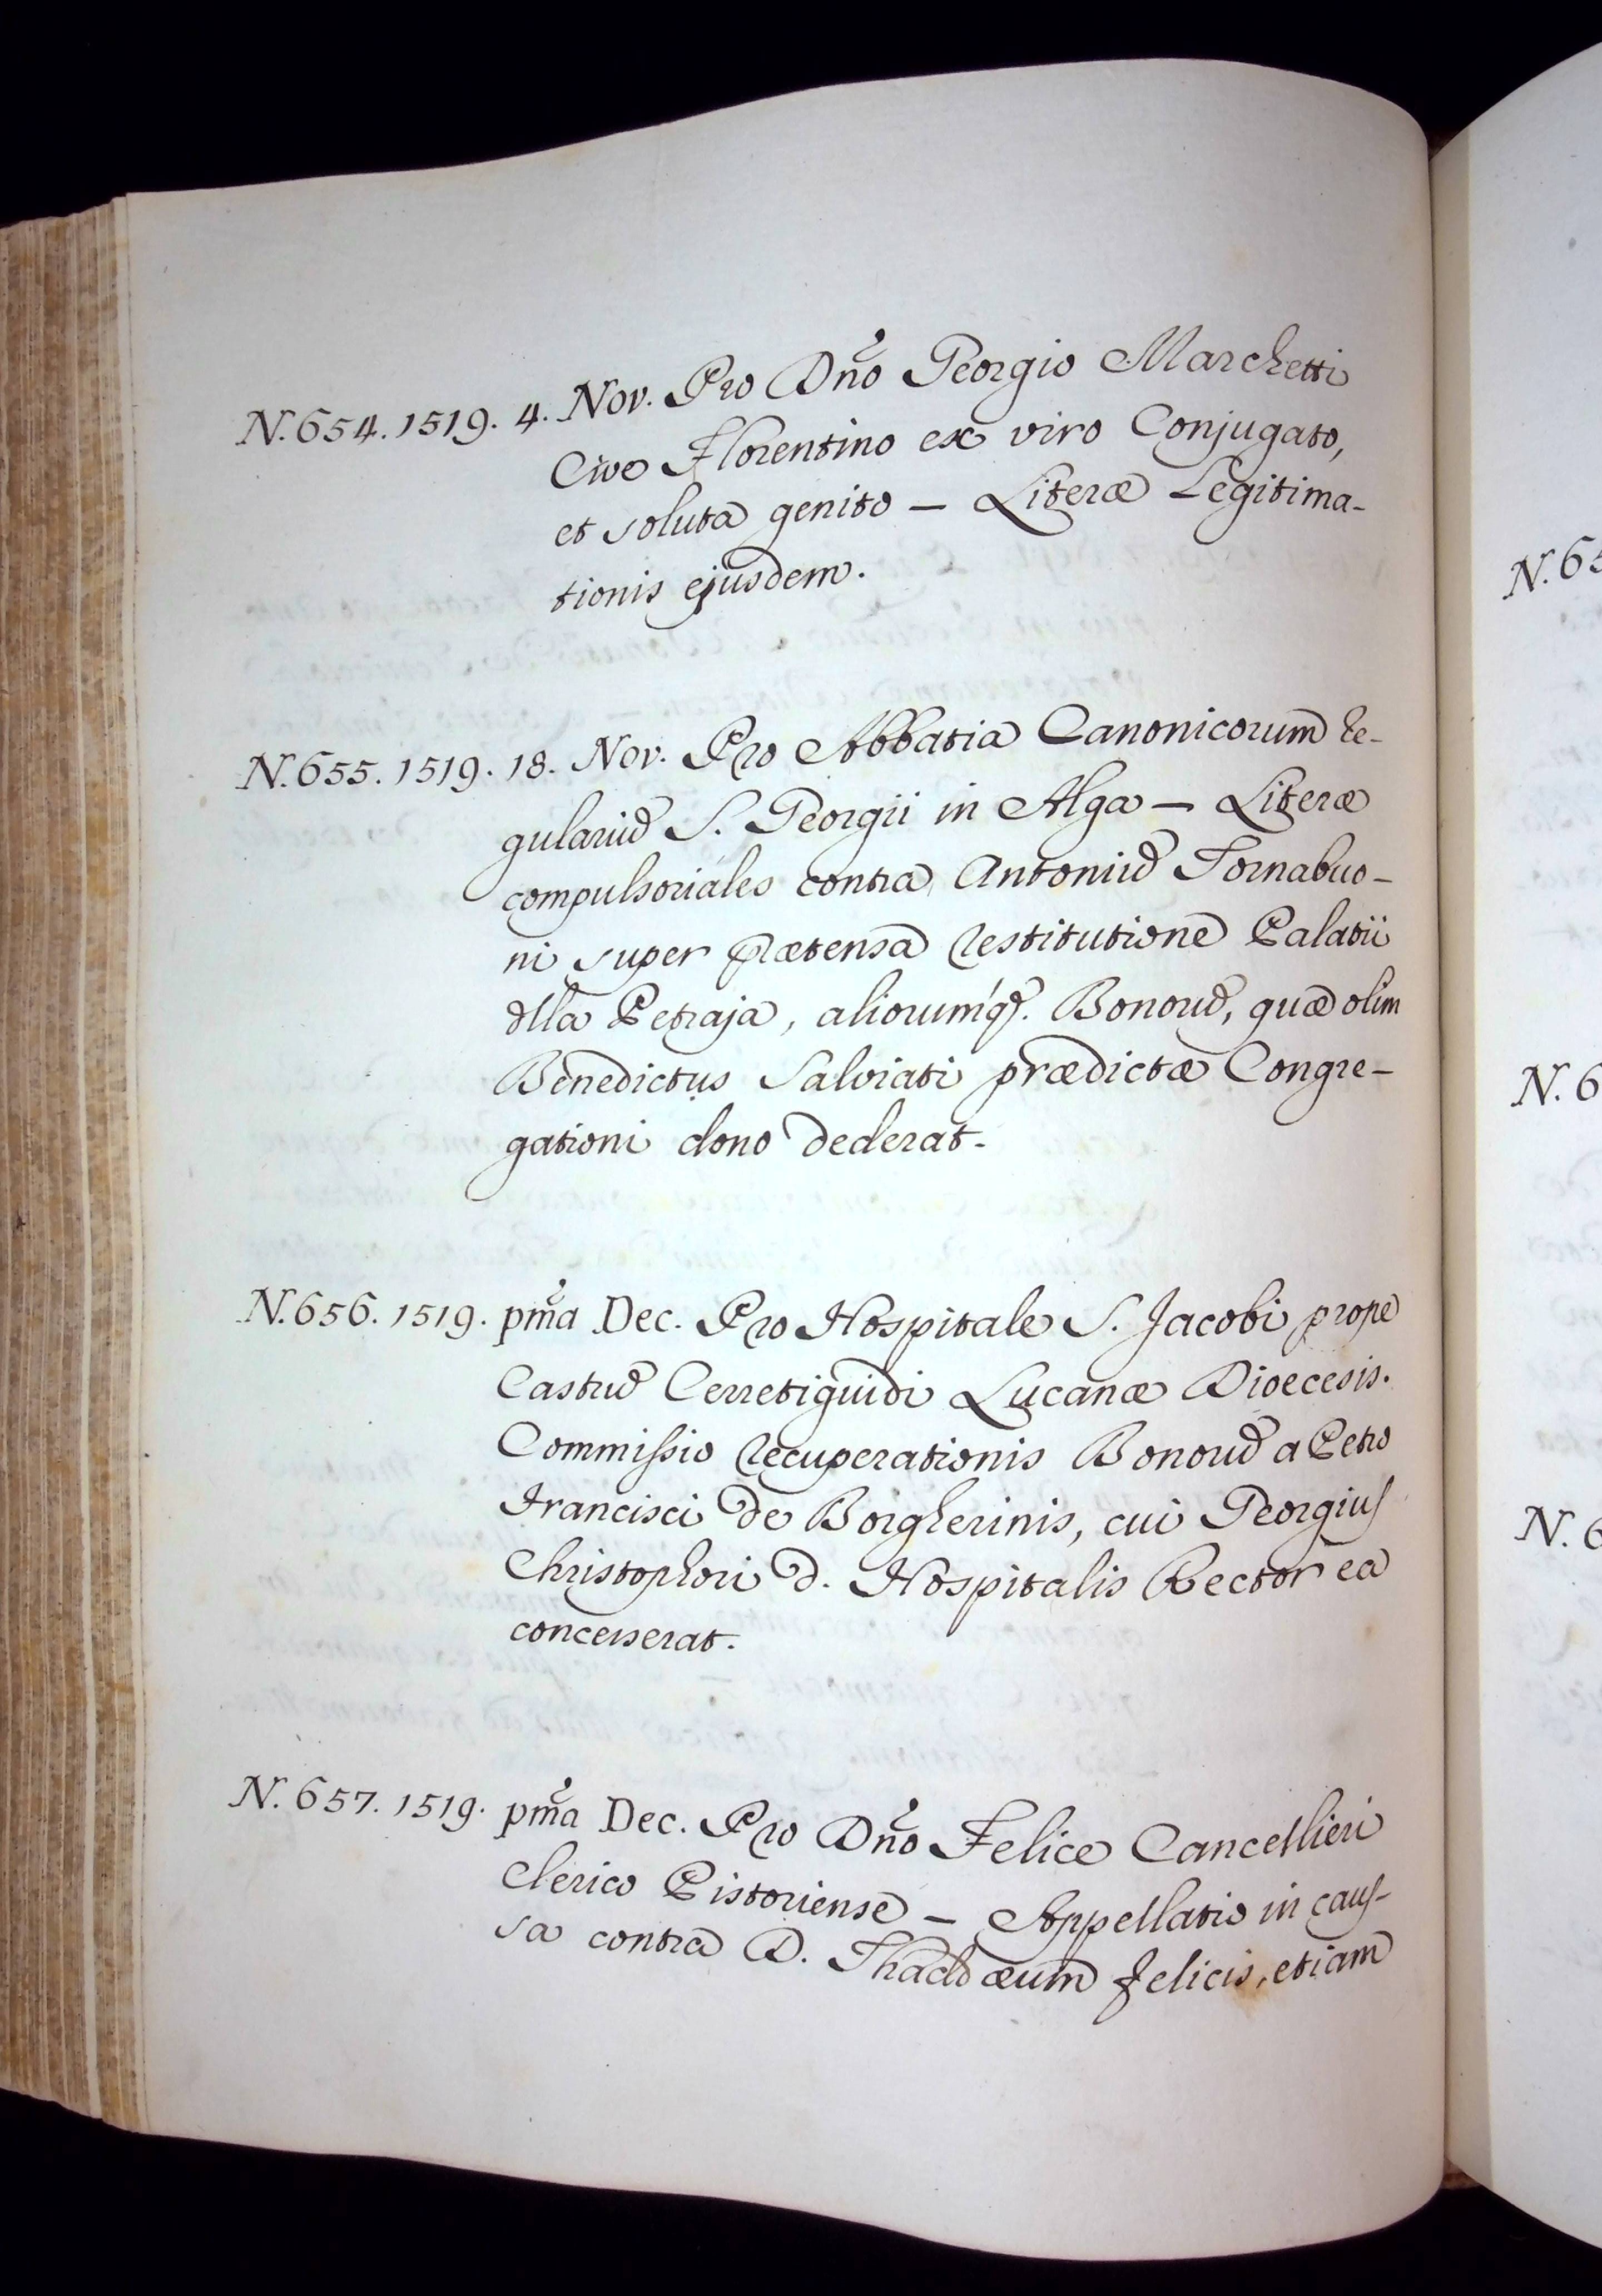 N. 654. 1519. 4. Nov. Pro Dño Georgio Marchetti
Cive Florentino ex viro Conjugato,
et soluta genito — Literæ Legitima-
tionis ejusdem.
N. 655. 1519. 18. Nov. Pro Abbatia Canonicorum Re-
gulariū S. Georgii in Alga — Literæ
compulsoriales contra Antoniū Tornabuo-
ni super prætensa Restitutione Palatii
dlla Petraja, aliorumq̃. Bonorū, quæ olim
Benedictus Salviati prædictæ Congre-
gationi dono dederat.
N. 656. 1519. pm̃a Dec. Pro Hospitale S. Jacobi prope
Castrū Cerretiguidi Lucanæ Dioecesis.
Commiſsio Recuperationis Bonorū a Petro
Francisci de Borgherinis, cui Georgius
Christophori d. Hospitalis Rector ea
concesserat.
N. 657. 1519. pm̃a Dec. Pro Dño Felice Cancellieri
Clerico Pistoriense — Appellatio in cauſ-
sa contra D. Thaddæum Felicis, etiam
N. 6
N. 6